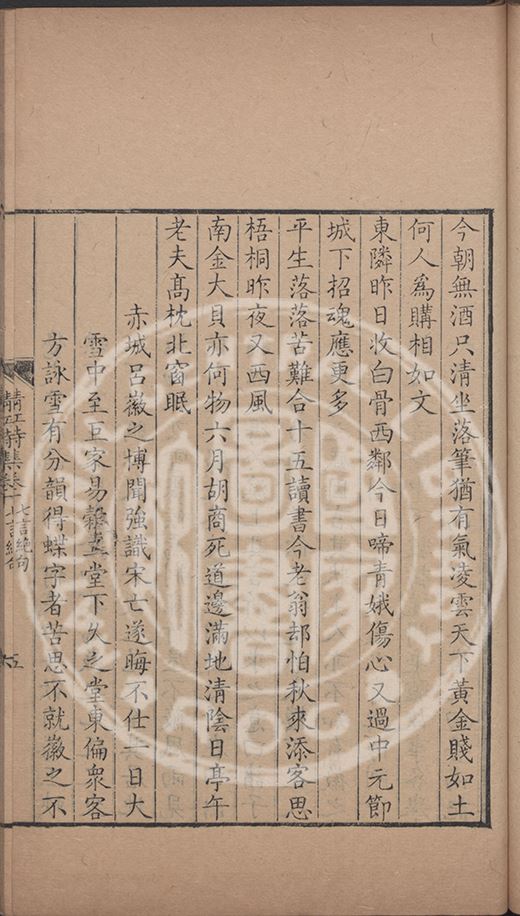 今朝無酒只清坐落筆猶有氣凌雲天下黃金賤如土
何人爲購相如文
東隣昨日收白骨西鄰今日啼青娥傷心又過中元節
城下招魂應更多
平生落落苦難合十五讀書今老翁却怕秋來添客思
梧桐昨夜又西風
南金大貝亦何物六月胡商死道邊滿地清陰日亭午
老夫髙枕北窗眠
赤城呂徽之博聞強識宋亡遂晦不仕一日大
雪中至豆家易穀立堂下久之堂東偏衆客
方詠雪有分韻得蝶字者苦思不就徽之不
詩集卷十 七言絶句
五